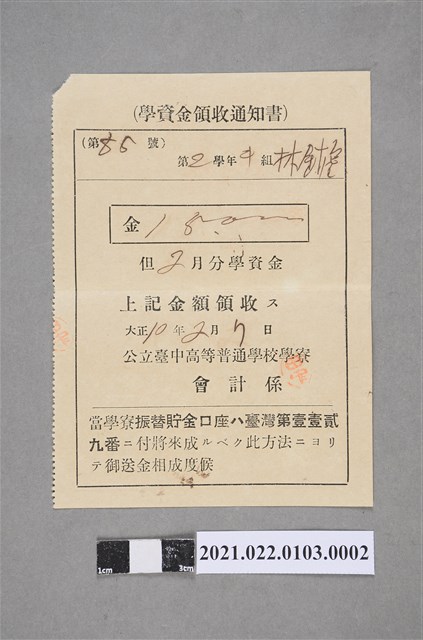 (學資金領收通知書)
(第85號)
第2學年 組 林
金 18.
但2月分學資金
上記金額領收ス
大正10年2月7日
公立臺中高等普通學校學寮
會計係
當學寮振替貯金口座ハ臺灣第壹壹貳
九番ニ付將來成ルベク此方法ニヨリ
テ御送金相成度候
1cm 3cm
2021.022.0103.0002